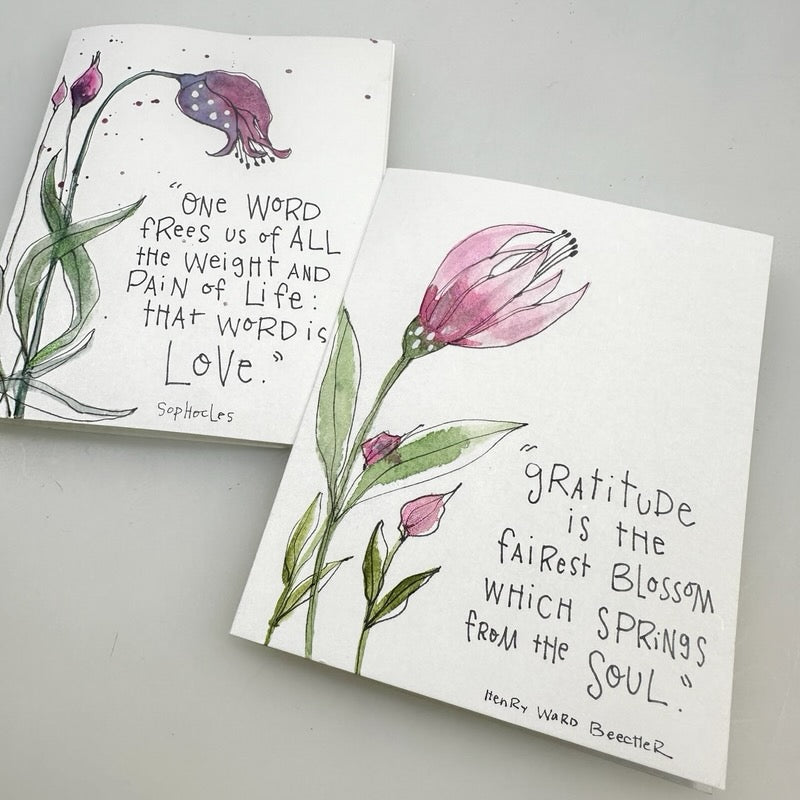 "ONE WORD
fREES us of ALL
the Weight AND
PAiN of Life:
tHAT WORD is
LOVE."
SOPHOCLES
"gRAtituDE
is tHE
fAiREst BLOSSOM
WHiCH SPRiNgS
fROM tHE
SOUL."
HENRY WARD BEECHER